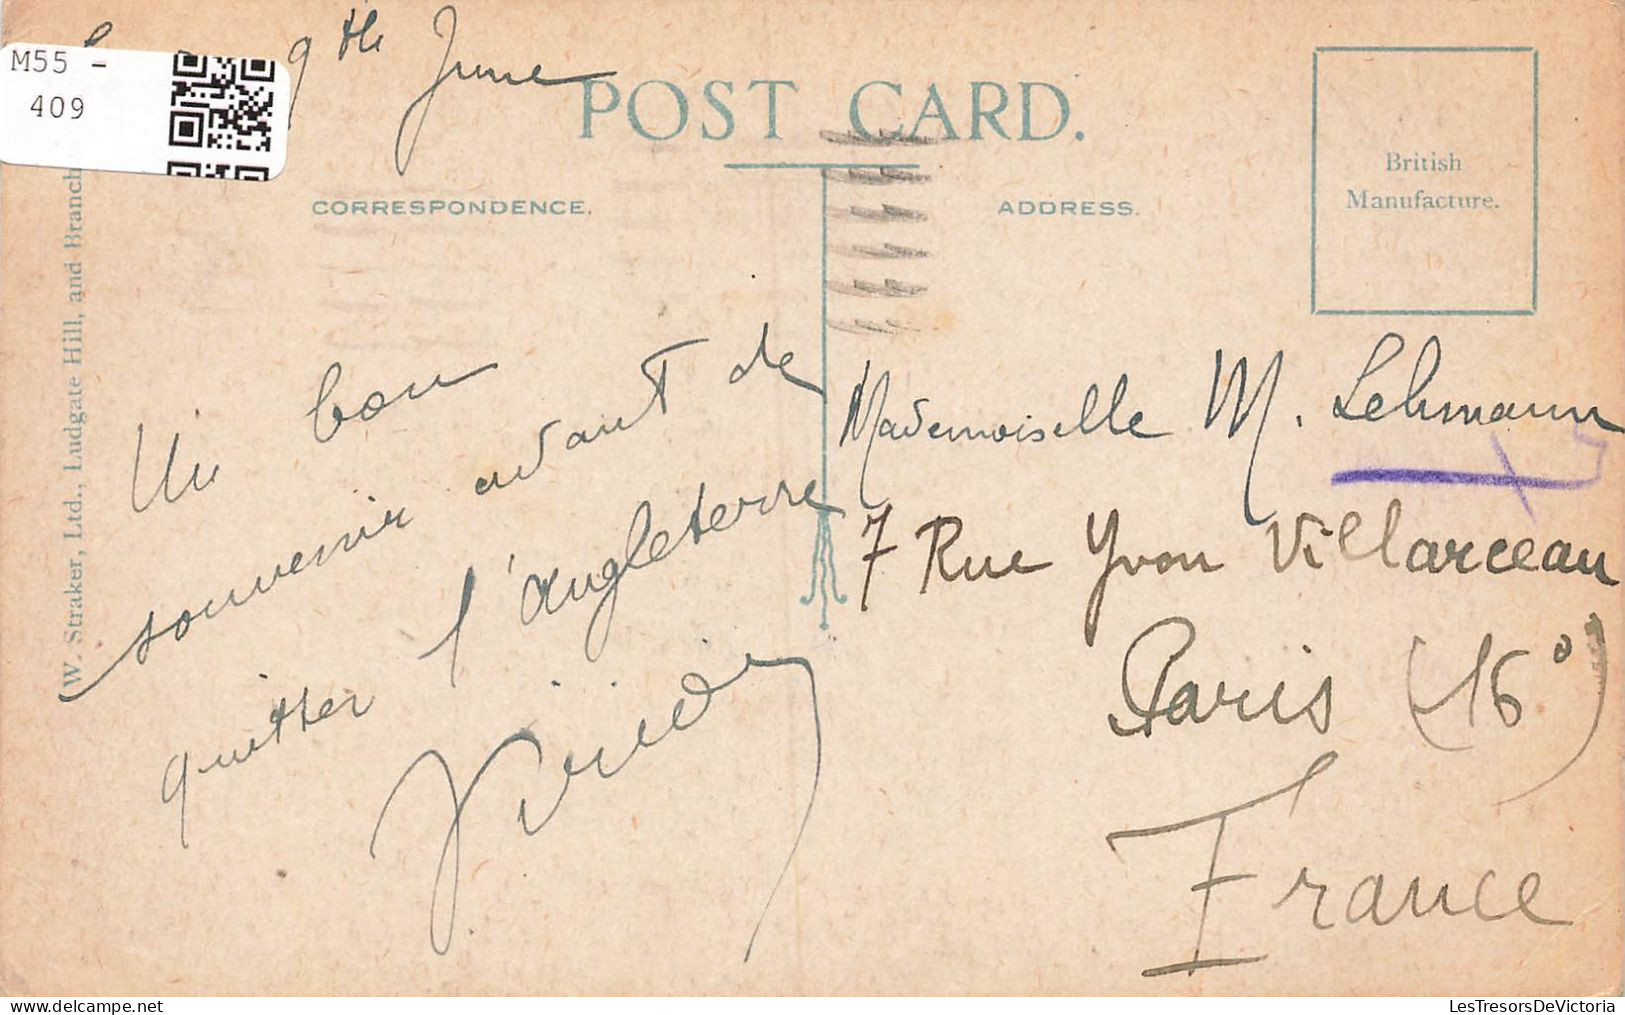 M55 -
409
9th June
POST CARD.
CORRESPONDENCE.
ADDRESS.
British
Manufacture.
W. Straker, Ltd., Ludgate Hill, and Branch
Un bon
souvenir avant de
quitter l'angleterre
Mademoiselle M. Lehmann
7 Rue Yvon Villarceau
Paris (16°)
France
LesTresorsDeVictoria